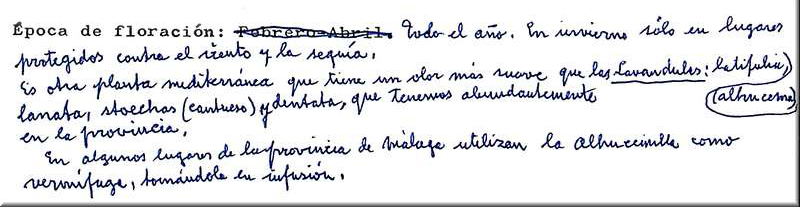 Época de floración: Febrero-Abril. Todo el año. En invierno sólo en lugares
protegidos contra el viento y la sequía.
Es otra planta mediterránea que tiene un olor más suave que las Lavandulas: latifolia,
lanata, stoechas (cantueso) y dentata, que tenemos abundantemente (alhucema)
en la provincia.
En algunos lugares de la provincia de Málaga utilizan la Alhucemilla como
vermífuga, tomándola en infusión.